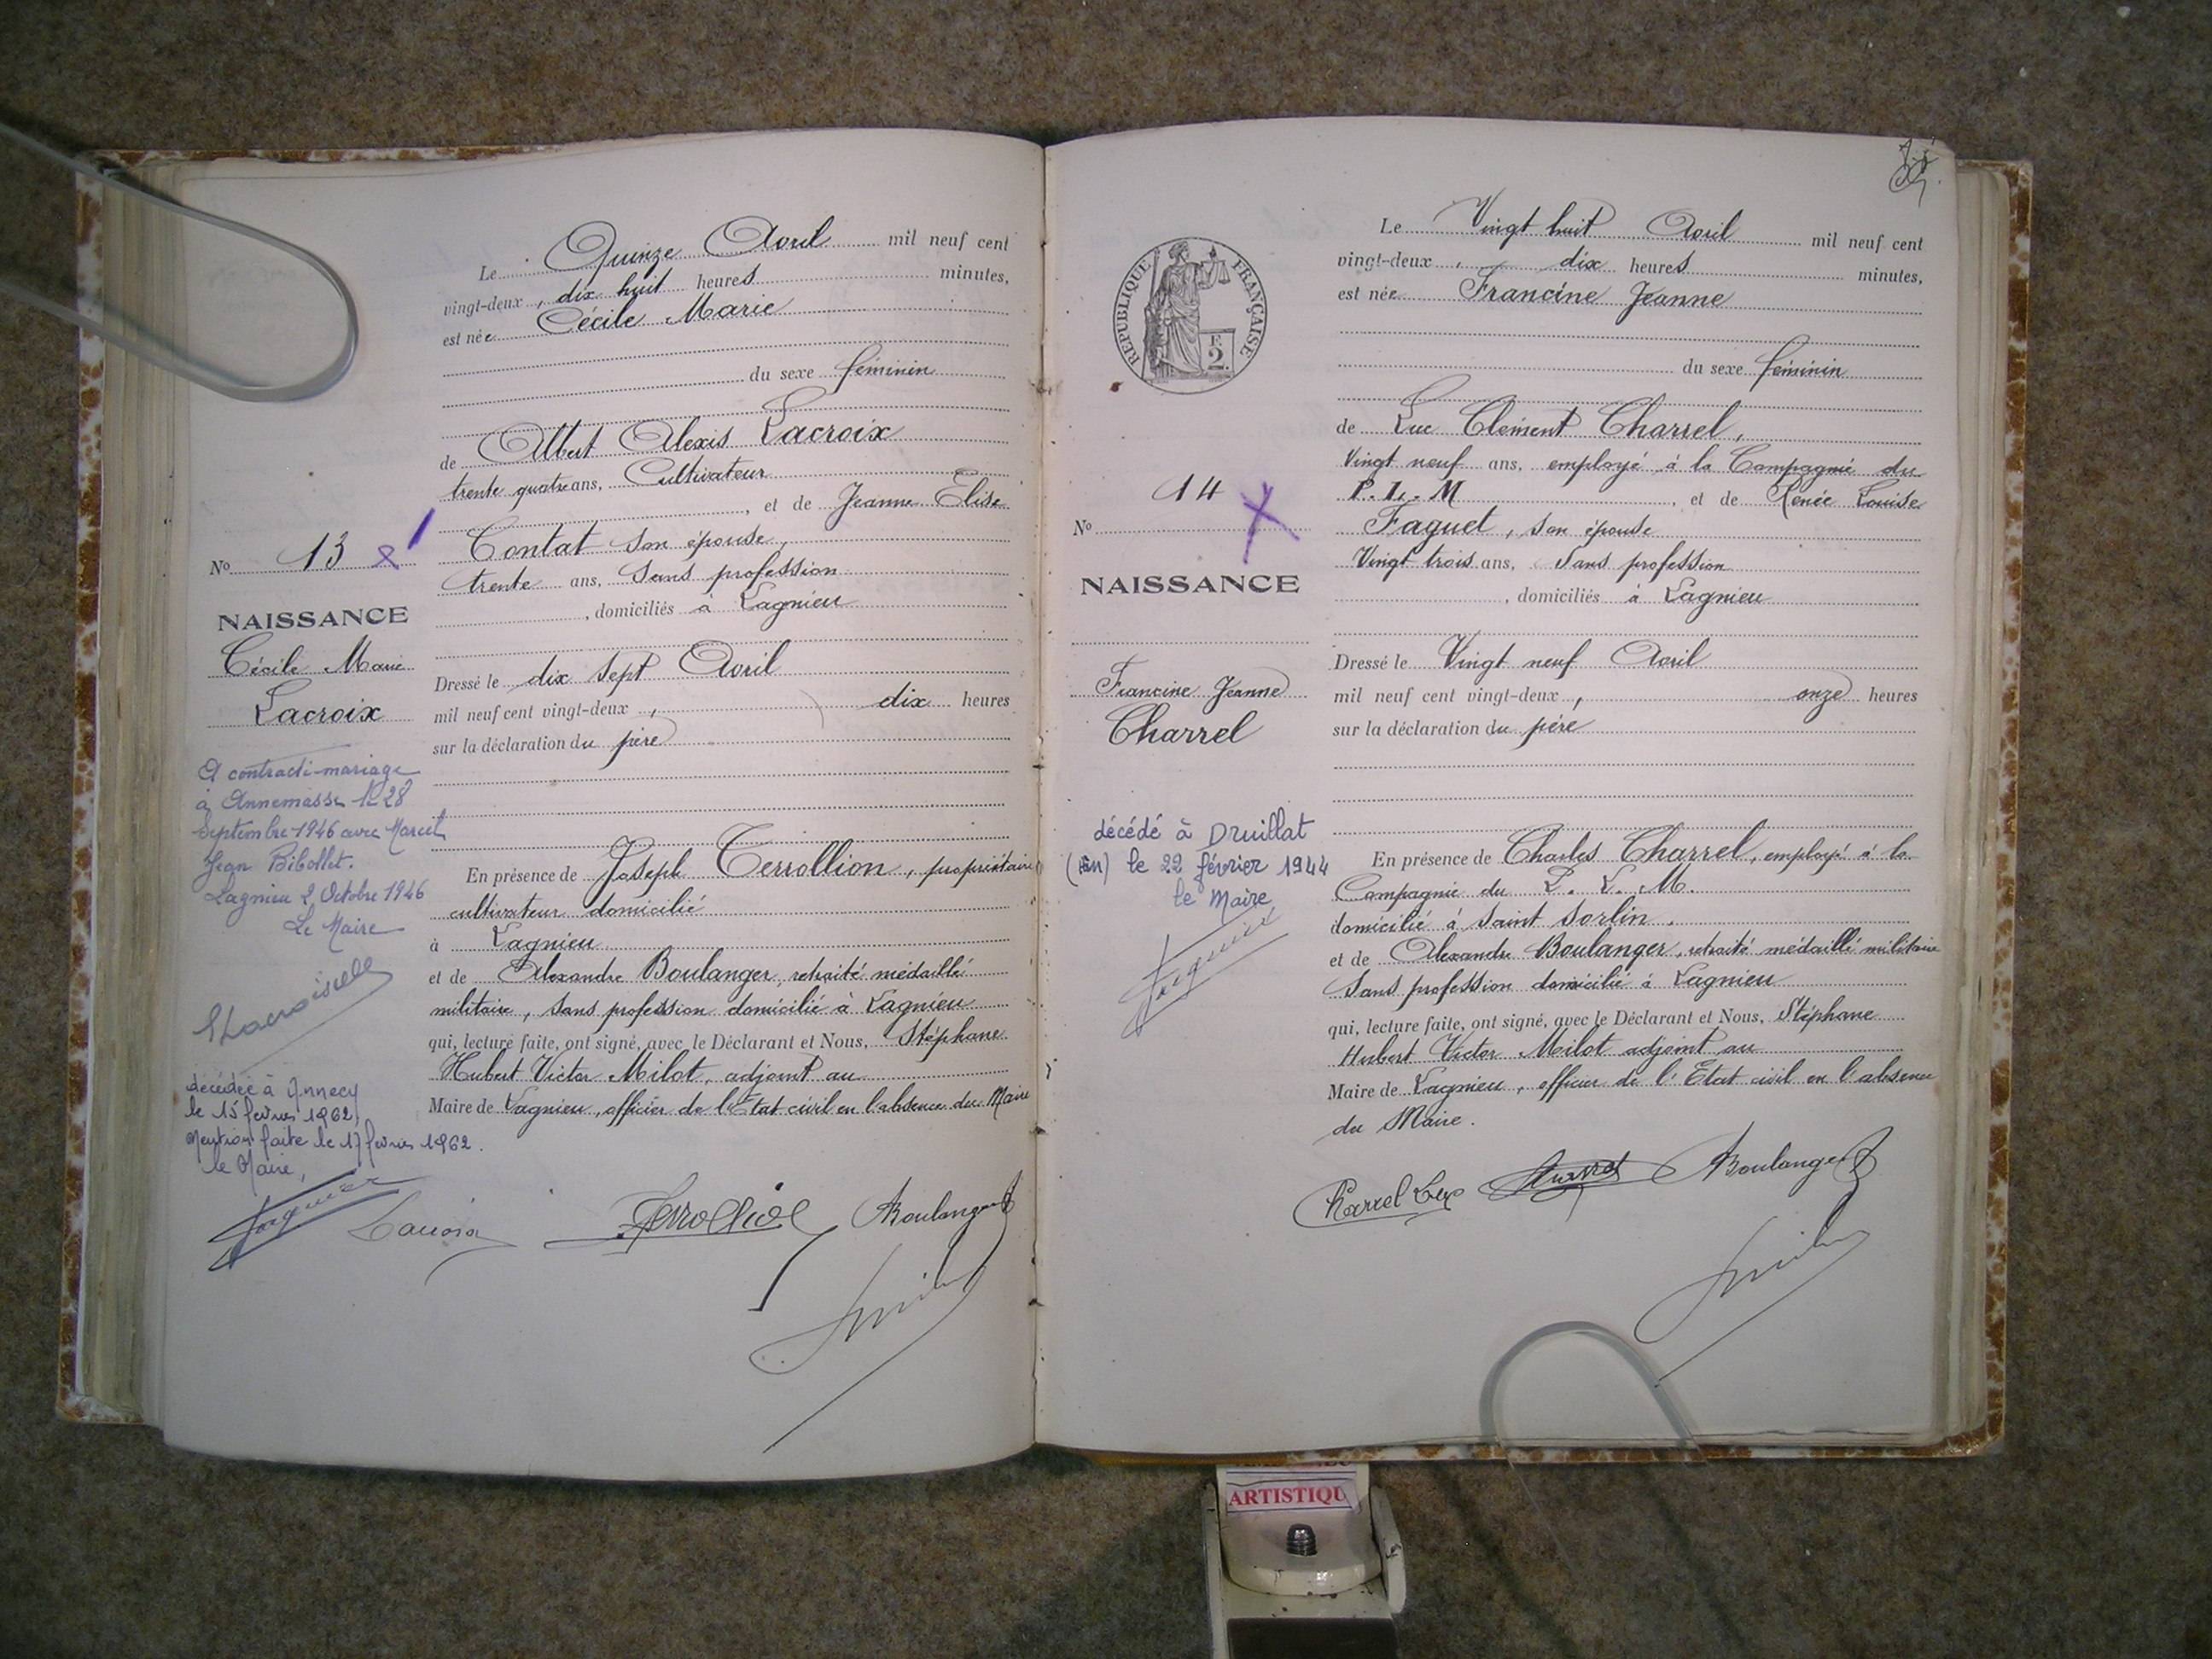 Le Quinze Avril mil neuf cent
vingt-deux, dix huit heures minutes,
est née Cécile Marie
du sexe féminin
de Albert Alexis Lacroix
trente quatre ans, Cultivateur
, et de Jeanne Elise
Contat son épouse,
trente ans, Sans profession
, domiciliés à Lagnieu
Dressé le dix sept Avril
mil neuf cent vingt-deux, dix heures
sur la déclaration du père
En présence de Joseph Terrollion, propriétaire
cultivateur domicilié
à Lagnieu
et de Alexandre Boulanger, retraité médaillé
militaire, sans profession domicilié à Lagnieu
qui, lecture faite, ont signé, avec le Déclarant et Nous, Stéphane
Hubert Victor Milot, adjoint au
Maire de Lagnieu, officier de l'Etat civil en l'absence du Maire
No 13
NAISSANCE
Cécile Marie
Lacroix
A contracté mariage
à Annemasse le 28
Septembre 1946 avec Marcel
Jean Bibollet.
Lagnieu 2 Octobre 1946
Le Maire
décédée à Annecy
le 15 février 1962
Mention faite le 17 février 1962.
le Maire,
Lacroix
Boulanger
REPUBLIQUE FRANÇAISE
F.
2.
Le Vingt huit Avril mil neuf cent
vingt-deux, dix heures minutes,
est née Francine Jeanne
du sexe féminin
de Luc Clément Charrel,
Vingt neuf ans, employé à la Compagnie du
P. L. M , et de Renée Louise
Faguet, son épouse
Vingt trois ans, Sans profession
, domiciliés à Lagnieu
Dressé le Vingt neuf Avril
mil neuf cent vingt-deux, onze heures
sur la déclaration du père
En présence de Charles Charrel, employé à la
Compagnie du P. L. M.
domicilié à Saint Sorlin.
et de Alexandre Boulanger, retraité médaillé militaire
Sans profession domicilié à Lagnieu
qui, lecture faite, ont signé, avec le Déclarant et Nous, Stéphane
Hubert Victor Milot adjoint au
Maire de Lagnieu, officier de l'Etat civil en l'absence
du Maire.
No 14
NAISSANCE
Francine Jeanne
Charrel
décédé à Druillat
(Ain) le 22 février 1944
le Maire
Charrel Luc
Boulanger
ARTISTIQU